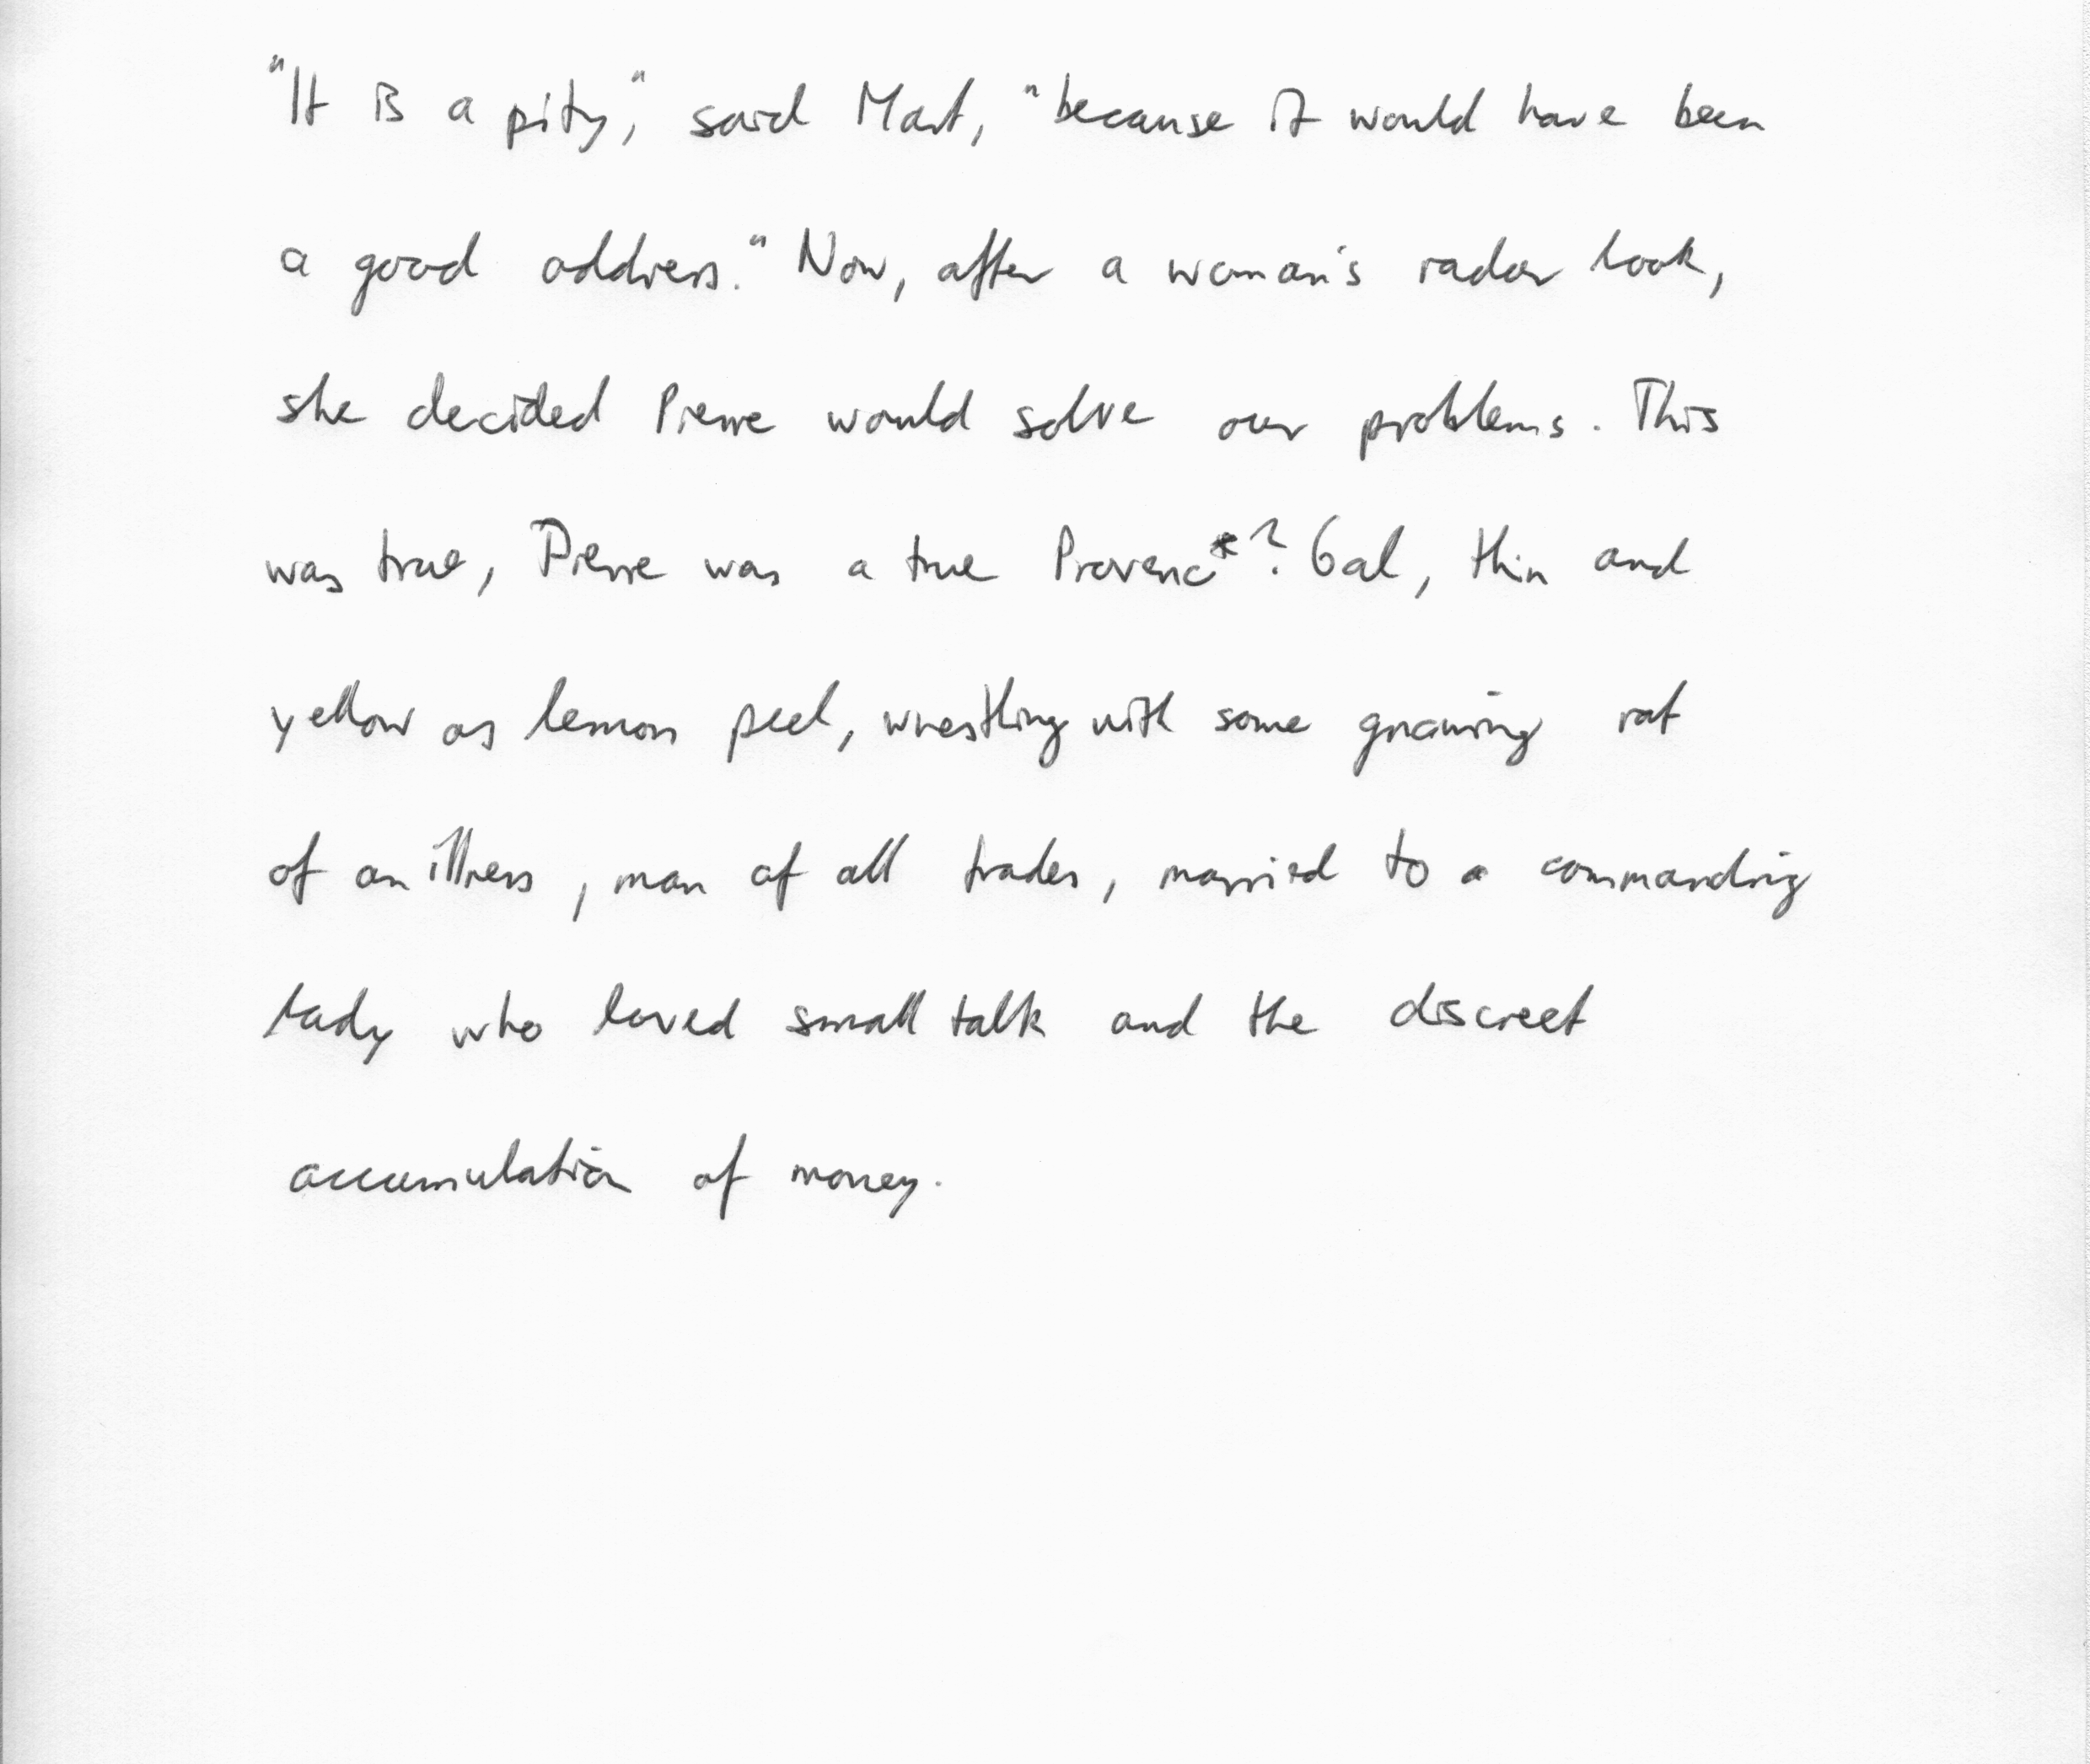 "It is a pity," said Mart, "because it would have been
a good address." Now, after a woman's radar look,
she decided Pierre would solve our problems. This
was true, Pierre was a true Provenc*? Gal, thin and
yellow as lemon peel, wrestling with some gnawing rat
of an illness, man of all trades, married to a commanding
lady who loved small talk and the discreet
accumulation of money.